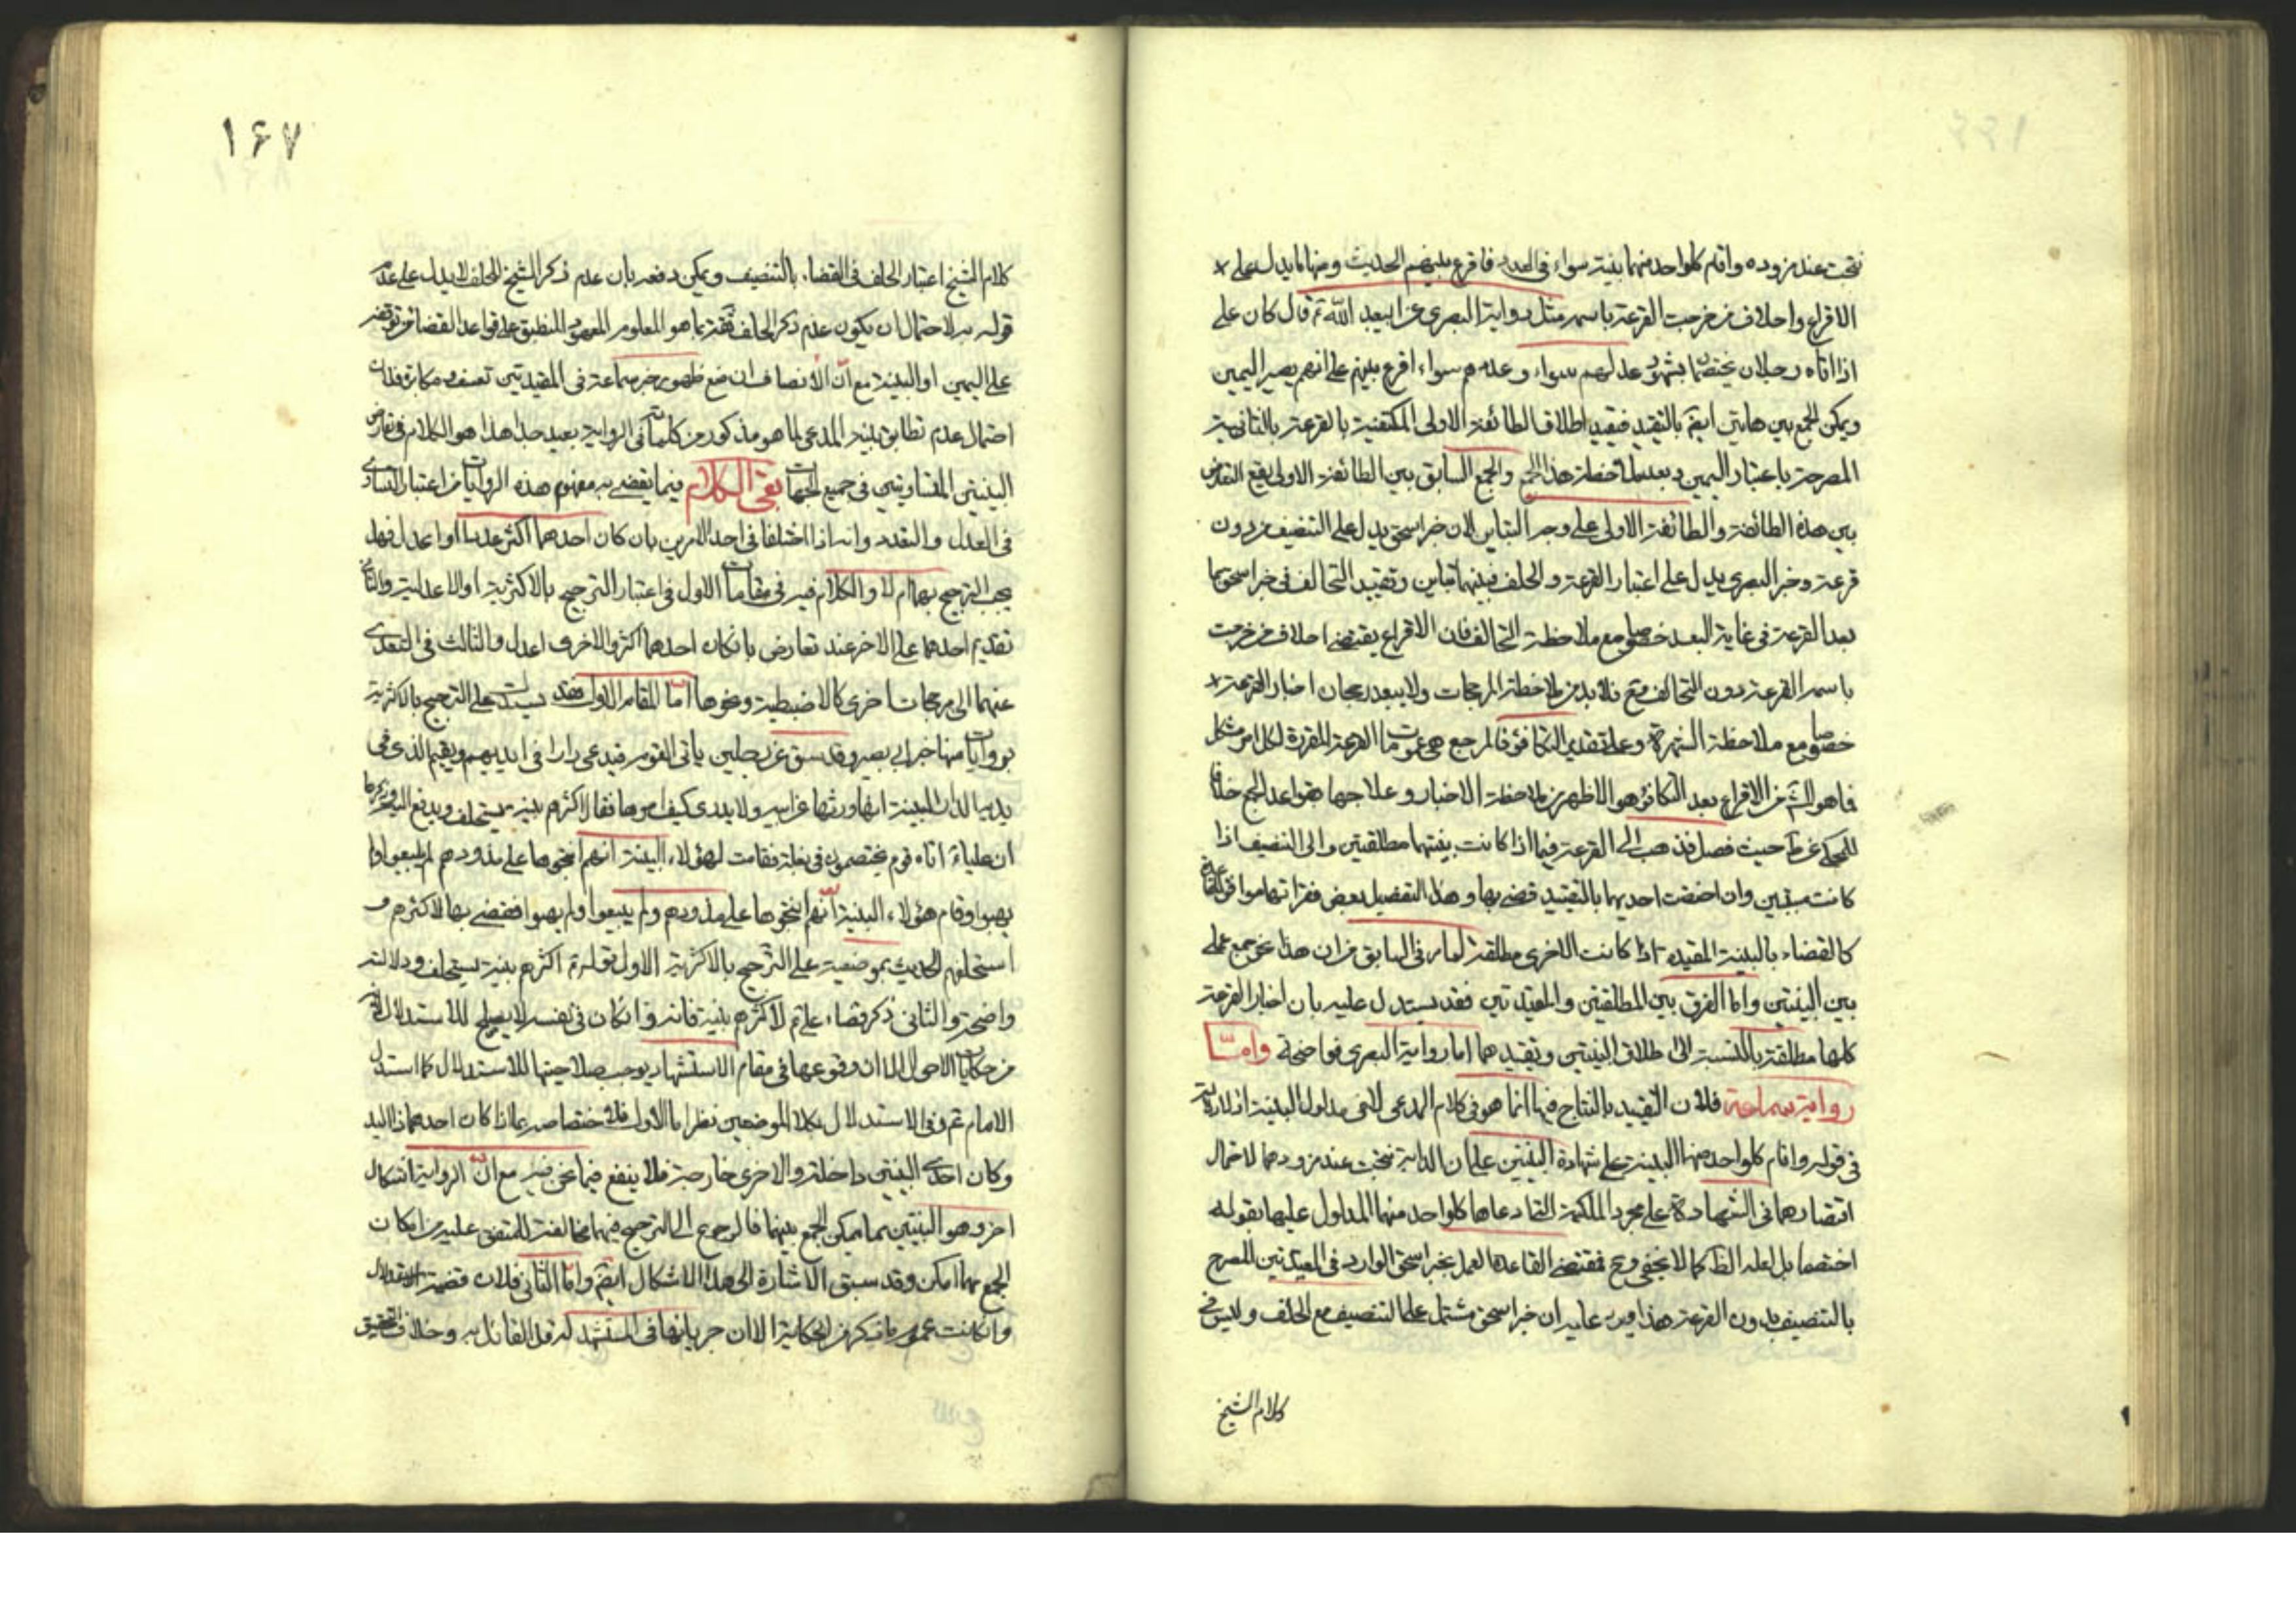 نتجت عند مزوده واقام كلواحد منهما بينة سواء في العدد فاقرع بينهم الحديث ومنها ما يدل على
الاقراع واحلاف من خرجت القرعة باسمه مثل رواية البصري عن ابيعبد الله ع قال كان علي
اذا اتاه رجلان يختصمان بشهود عدلهم سواء وعددهم سواء اقرع بينهم على انهم يصير اليمين
ويمكن الجمع بين هاتين ايضم بالتقييد فيقيد اطلاق الطائفة الاولى المكتفية بالقرعة بالثانية
المصرحة باعتبار اليمين وبعد ملاحظة هذا الجمع والجمع السابق بين الطائفة الاولى يقع التعارض
بين هذه الطائفة والطائفة الاولى على وجه التباين لان خبر اسحق يدل على التنصيف من دون
قرعة وخبر البصري يدل على اعتبار القرعة والحلف فبينهما تباين وتقييد التحالف في خبر اسحق بما
بعد القرعة في غاية البعد خصوصا مع ملاحظة التحالف فان الاقراع يقتضي احلاف من خرجت
باسمه القرعة دون التحالف فح فلا بد من ملاحظة المرجحات ولا يبعد رجحان اخبار القرعة
خصوصا مع ملاحظة الشهرة وعلى تقدير التكافؤ فالمرجع هي عمومات القرعة المقررة لكل امر مشكل
فما هو الش من الاقراع بعد التكافؤ هو الاظهر من ملاحظة الاخبار وعلاجها بقواعد الجمع خلافا
للمحكي عن ط حيث فصل فذهب الى القرعة فيما اذا كانت بينتهما مطلقتين والى التنصيف اذا
كانت مقيدتين وان اختصت احديهما بالتقييد قضي بها وهذا التفصيل بعض فقراتها موافق للقاعدة
كالقضاء بالبينة المقيدة اذا كانت الاخرى مطلقة لما مر في السابق من ان هذا نحو جمع عملي
بين البينتين واما الفرق بين المطلقتين والمقيدتين فقد يستدل عليه بان اخبار القرعة
كلها مطلقة بالنسبة الى اطلاق البينتين وتقييدهما اما رواية البصري فواضحة واما
رواية سماعة فلان التقييد بالنتاج فيها انما هو في كلام المدعي لا في مدلول البينة اذ لا دلالة
في قوله واقام كلواحد منهما البينة على شهادة البينتين على ان الدابة نتجت عند مزودهما لاحتمال
اقتصارهما في الشهادة على مجرد الملكية التي ادعاها كلواحد منهما المدلول عليها بقوله
اختصما بل لعله الظ كما لا يخفى وح فمقتضى القاعدة العمل بخبر اسحق الوارد في المقيدتين المصرح
بالتنصيف بدون القرعة هذا ويرد عليه ان خبر اسحق مشتمل على التنصيف مع الحلف وليس في
كلام الشيخ
١۶٧
كلام الشيخ اعتبار الحلف في القضاء بالتنصيف ويمكن دفعه بان عدم ذكر الشيخ الحلف لا يدل على عدم
قوله به لاحتمال ان يكون عدم ذكر الحلف ثقة بما هو المعلوم المعهود المنطبق على قواعد القضاء من توقفه
على اليمين او البينة مع ان الانصاف ان منع ظهور خبر سماعة في المقيدتين تعسف ومكابرة فان
احتمال عدم تطابق بينة المدعي لما هو مذكور من كلماته في الرواية بعيد جدا هذا هو الكلام في تعارض
البينتين المتساويتين في جميع الجهات بقى الكلام فيما يقضي به مفهوم هذه الروايات من اعتبار التساوي
في العدل والعدد وانه اذا اختلفا في احد الامرين بان كان احدهما اكثر عددا او اعدل فهل
يجب الترجيح بهما ام لا والكلام فيه في مقامات الاول في اعتبار الترجيح بالاكثرية او الاعدلية والثاني
تقديم احدهما على الاخر عند تعارض بان كان احدهما اكثر والاخرى اعدل والثالث في التعدي
عنهما الى مرجحات اخرى كالاضبطية ونحوها اما المقام الاول فقد يستدل على الترجيح بالاكثرية
بروايات منها خبر ابي بصير وقد سبق عن رجلين ياتي القوم فيدعي دارا في ايديهم ويقيم الذي في
يديه الدار البينة انه ورثها عن ابيه ولا يدري كيف امرها فقال اكثرهم بينة يستحلف ويدفع اليه وذكر
ان عليا ع اتاه قوم يختصمون في بغلة فقامت لهؤلاء البينة انهم انتجوها على مذودهم لم يبيعوا ولم
يهبوا وقام هؤلاء البينة انهم انتجوها على مذودهم ولم يبيعوا ولم يهبوا فقضى بها لاكثرهم و
استحلفهم الحديث بموضعين على الترجيح بالاكثرية الاول قوله ع اكثرهم بينة يستحلف ودلالته
واضحة والثاني ذكر قضاء علي ع لاكثرهم بينة فانه وان كان في نفسه لا يصلح للاستدلال لانه
من حكايات الاحوال الا ان وقوعها في مقام الاستشهاد يوجب صلاحيتها للاستدلال كما استدل
الامام ع وفي الاستدلال بكلا الموضعين نظر اما الاول فلاختصاصه بما اذا كان احدهما ذا اليد
وكان احدى البينتين داخلة والاخرى خارجة فلا ينفع فيما نحن فيه مع ان الرواية اشكال
اخر وهو البينتين مما يمكن الجمع بينهما فالرجوع الى الترجيح فيها مخالفة للمتفق عليه من امكان
الجمع مهما امكن وقد سبق الاشارة الى هذا الاشكال ايضم واما الثاني فلان قضية الاستدلال
وان كانت عموم ما فيه كهذه الحكاية الا ان جريانها في المستشهد له قل القائل به وخلاف التحقيق